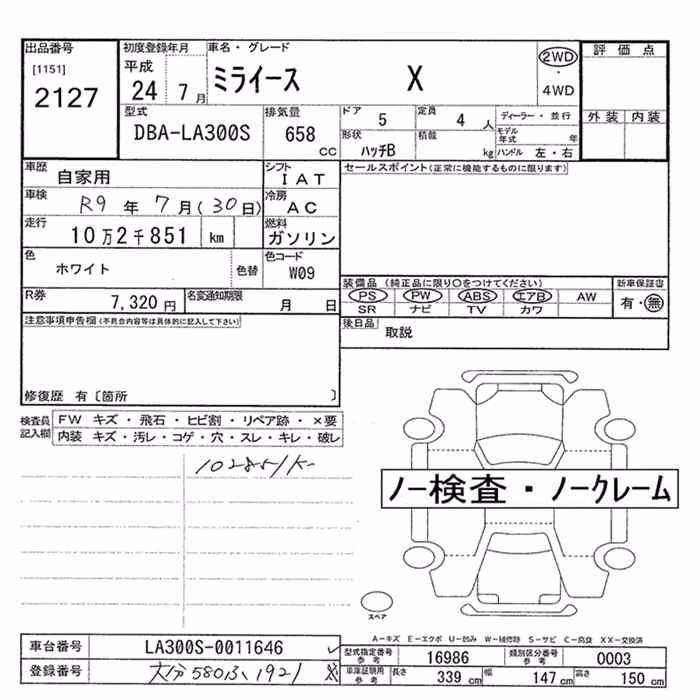 出品番号
[1151]
2127
初度登録年月
平成
24 7 月
車名・グレード
ミライース X
2WD
・
4WD
評価点
外装 内装
型式
DBA-LA300S
排気量
658
CC
ドア
5
定員
4 人
ディーラー・並行
モデル年式 年
形状
ハッチB
積載
kg
ハンドル 左・右
車歴
自家用
シフト
IAT
セールスポイント(正常に機能するものに限ります)
車検
R9 年 7 月(30日)
冷房
AC
走行
10万2千851 km
燃料
ガソリン
色
ホワイト
色替
色コード
W09
装備品 (純正品に限り○をつけてください)
PS PW ABS エアB AW
SR ナビ TV カワ
新車保証書
有・無
R券
7,320 円
名変通知期限
月 日
後日品
取説
注意事項申告欄(不具合内容等は具体的に記入して下さい)
修復歴 有〔箇所 〕
検査員記入欄
FW キズ・飛石・ヒビ割・リペア跡・×要
内装 キズ・汚レ・コゲ・穴・スレ・キレ・破レ
102851K-
ノー検査・ノークレーム
スペア
A-キズ E-エクボ U-凹み W-補修跡 S-サビ C-腐食 XX-交換済
車台番号
LA300S-0011646
登録番号
大分 580 ふ 1921
型式指定番号
参考
16986
類別区分番号
参考
0003
車庫証明用
参考
長さ
339 cm
幅
147 cm
高さ
150 cm